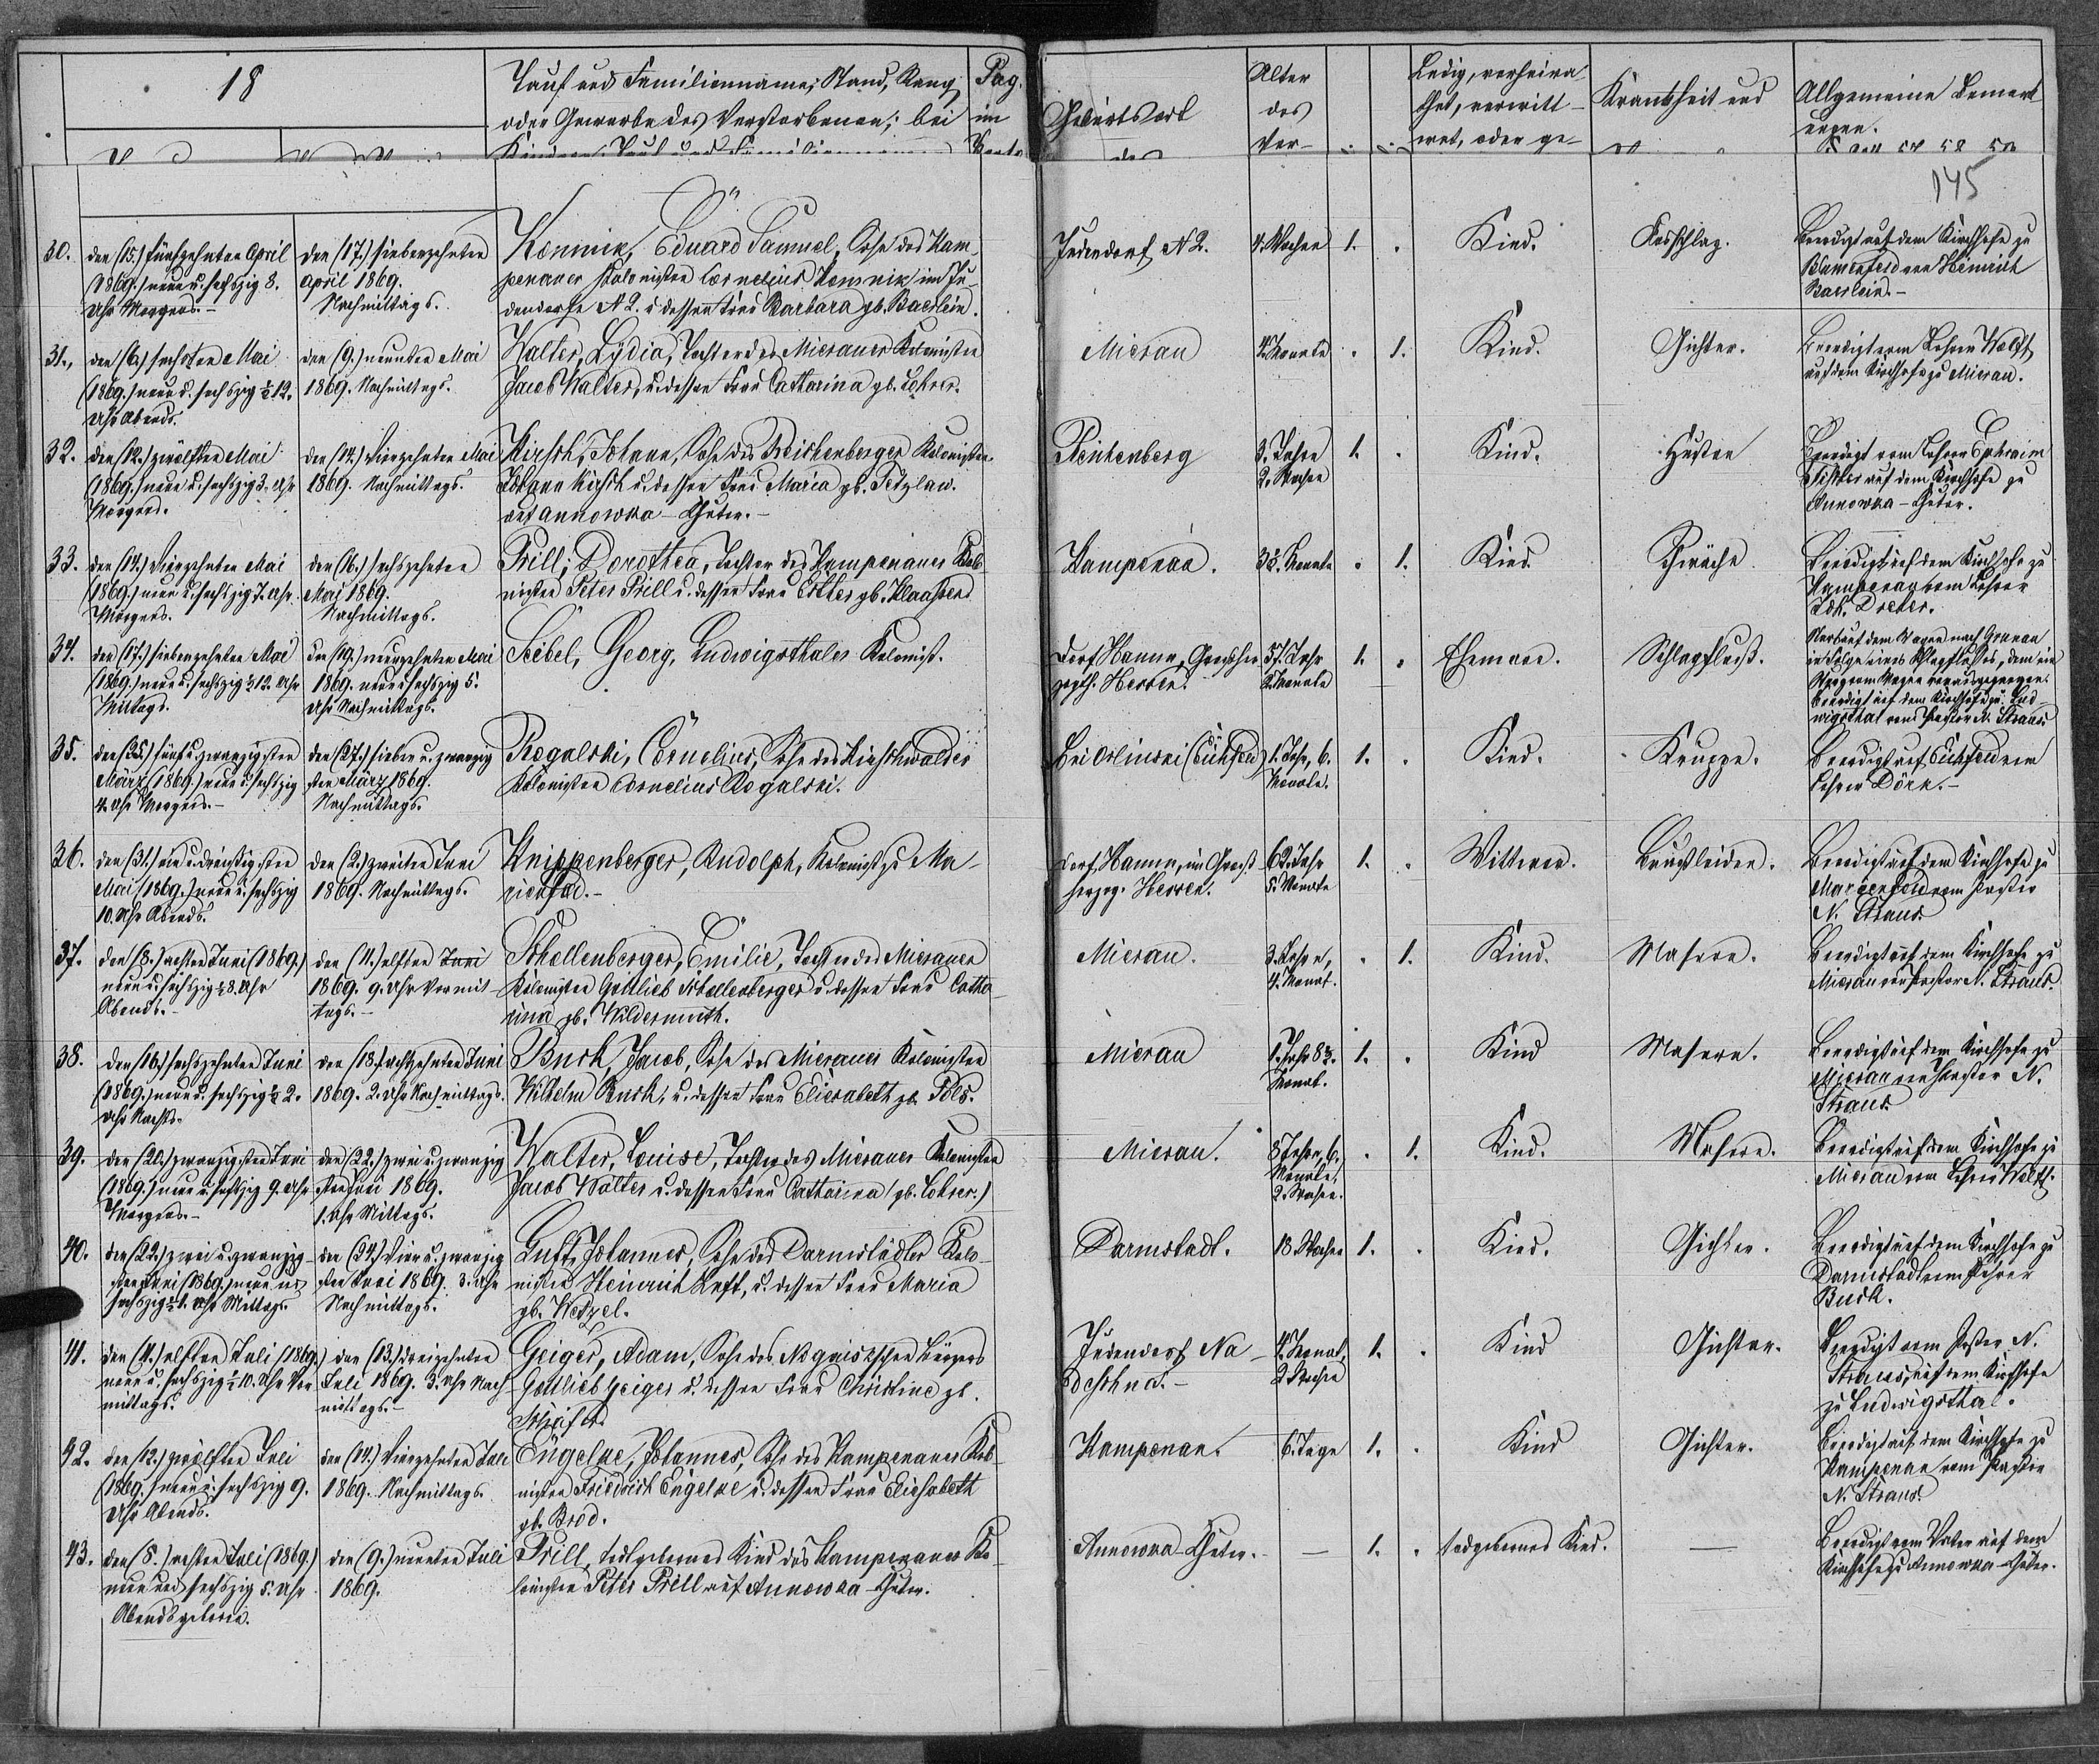 18
Tauf und Familienname, Stand, Rang
oder Gewerbe des Verstorbenen; bei
Kindern, Tauf und Familienname
Pag.
im
Geburtsort
des
Alter
des
Ver-
Ledig, verheira-
thet, verwitt-
wet, oder ge-
Krankheit und
Allgemeine Bemerk
ungen.
145
30.
den (15.) fünfzehnten April
(1869.) neun u. sechszig 3.
Uhr Morgens.-
den (17.) siebenzehnten
April 1869.
Nachmittags.
Konnik, Eduard Samuel, Sohn des Kam-
penauer Kolonisten Cornelius Konnik im Ju-
dendorfe N 2. u dessen Frau Barbara gb. Baerlein.
Judendorf N 2.
4. Wochen
1.
Kind.
Ausschlag.
Beerdigt auf dem Kirchhofe zu
Blumenfeld von Heinrich
Baerlein.-
31.,
den (6.) sechsten Mai
(1869.) neun u. sechszig ½ 12.
Uhr Abends.
den (9.) neunten Mai
1869. Nachmittags.
Walter, Lydia, Tochter des Mierauer Kolonisten
Jacob Walter, u. dessen Frau Catharina gb. Lohrer.
Mierau
Monate
1.
Kind.
Gichter.
Beerdigt vom Lehrer Wolft
auf dem Kirchhofe zu Mierau.
32.
den (12.) zwölften Mai
(1869.) neun u. sechszig 3. Uhr
Morgens.
den (14.) Vierzehnten Mai
1869. Nachmittags.
Hirsch, Johann, Sohn des Reichenberger Kolonisten
Johann Hirsch u. dessen Frau Maria gb. Tetzlaw.
auf Annowka-Chutor.-
Reichenberg
3. Jahre
2. Wochen
1.
Kind.
Husten
Beerdigt vom Lehrer Ephraim
auf dem Kirchhofe zu
Annowka-Chutor.
33.
den (14.) Vierzehnten Mai
(1869.) neun u. sechszig 7. Uhr
Morgens.
den (16.) sechszehnten
Mai 1869.
Nachmittags.
Prill, Dorothea, Tochter des Kampenauer Kolo-
nisten Peter Prill u. dessen Frau Esther gb. Klaassen
Kampenau.
3½. Monate
1.
Kind
Schwäche
Beerdigt auf dem Kirchhofe zu
Kampenau vom Lehrer
Joh. Dreher.
34.
den (17.) siebenzehnten Mai
(1869.) neun u. sechszig ½ 12. Uhr
Mittags.
den (19.) neunzehnten Mai
1869. neun u. sechszig 5.
Uhr Nachmittags.
Seibel, Georg, Ludwigsthaler Kolonist.
Dorf Hamm, Großher-
zogth. Hessen.
57. Jahr
Monate
1.
Ehemann.
Schlagfluß.
Starb auf dem Wagen nach Grunau
in Folge eines Schlagflußes, dem ein
Wagen vorausgegangen.
Beerdigt auf dem Kirchhofe zu Lud-
wigsthal vom Pastor N. Straus.
35.
den (25.) fünf u. zwanzigsten
März (1869.) neun u. sechszig
4. Uhr Morgens.-
den (27.) sieben u. zwanzig-
sten März 1869.
Nachmittags.
Rogalski, Cornelius, Sohn des Kirschwalder
Kolonisten Cornelius Rogalski.
Bei Orlinski (Eichfeld)
1. Jahr, 6.
Monate.
1.
Kind.
Kruppe.
Beerdigt auf Eichfeld vom
Lehrer Dörk.-
36.
den (31.) ein u. dreißigsten
Mai (1869.) neun u. sechszig
10. Uhr Abends.
den (2.) zweiten Juni
1869. Nachmittags.
Knippenberger, Rudolph, Kolonist zu Ma-
rienfeld.-
Dorf Hamm, im Großh-
herzog. Hessen.
62. Jahr
5. Monate
1.
Wittwer.
Brustleiden.
Beerdigt auf dem Kirchhofe zu
Marienfeld vom Pastor
N. Straus.
37.
den (8.) achten Juni (1869.)
neun u. sechszig ½ 8. Uhr
Abends.-
den (11.) elften Juni
1869. 9. Uhr Vormit-
tags.-
Schellenberger, Emilie, Tochter des Mierauer
Kolonisten Gottlieb Schellenberger u. dessen Frau Catha-
rina gb. Wildermuth.
Mierau.
3. Jahre,
4. Monat.
1.
Kind.
Masern.
Beerdigt auf dem Kirchhofe zu
Mierau von Pastor N. Straus.
38.
den (16.) sechszehnten Juni
(1869.) neun u. sechszig ½ 2.
Uhr Nachts.
den (18.) achtzehnten Juni
1869. 2. Uhr Nachmittags.
Busch, Jacob, Sohn des Mierauer Kolonisten
Wilhelm Busch, u. dessen Frau Eliesabeth gb. Föls.
Mierau
1. Jahr 8½.
Monat.
1.
Kind
Masern.
Beerdigt auf dem Kirchhofe zu
Mierau von Pastor N.
Straus.
39.
den (20.) zwanzigsten Juni
(1869.) neun u. sechszig 9. Uhr
Morgens.-
den (22.) zwei u. zwanzig-
sten Juni 1869.
1. Uhr Mittags.
Walter, Louise, Tochter des Mierauer Kolonisten
Jacob Walter u. dessen Frau Catharina (gb. Lohrer.)
Mierau.
8 Jahre, 6.
Monate,
2. Wochen.
1.
Kind.
Masern.
Beerdigt auf dem Kirchhofe zu
Mierau vom Lehrer Wolft.
40.
den (22.) zwei u. zwanzig-
sten Juni (1869.) neun und
sechszig ½ 1. Uhr Mittags.
den (24.) Vier u. zwanzig-
sten Juni 1869. 3. Uhr
Nachmittags.
Luft, Johannes, Sohn des Darmstädter Kolo-
nisten Heinrich Luft, u. dessen Frau Maria
gb. Wetzel.
Darmstadt.
18. Wochen
1.
Kind.
Gichter.
Beerdigt auf dem Kirchhofe zu
Darmstadt vom Lehrer
Busch.
41.
den (11.) elften Juli (1869.)
neun u. sechszig ½ 10. Uhr Vor-
mittags.
den (13.) dreizehnten
Juli 1869. 3. Uhr Nach-
mittags.-
Geiger, Adam, Sohn des Bürgers
Gottlieb Geiger u. dessen Frau Christine gb.
Schäfer.
Judendorf Na-
deschna.-
4. Monat,
2 Wochen
1.
Kind
Gichter.
Beerdigt vom Pastor N.
Straus, auf dem Kirchhofe
zu Ludwigsthal.
42.
den (12.) zwölften Juli
(1869.) neun u. sechszig 9.
Uhr Abends.
den (14.) Vierzehnten Juli
1869. Nachmittags.
Engelke, Johannes, Sohn des Kampenauer Kolo-
nisten Friedrich Engelke u. dessen Frau Eliesabeth
gb. Brod.
Kampenau.
6. Tage
1.
Kind
Gichter.
Beerdigt auf dem Kirchhofe zu
Kampenau vom Pastor
N. Straus.
43.
den (8.) achten Juli (1869.)
neun und sechszig 5. Uhr
Abends geboren.
den (9.) neunten Juli
1869.
Prill, todtgebornes Kind des Kampenauer Ko-
lonisten Peter Prill auf Annowka-Chutor.
Annowka-Chutor.
—
1.
todgebornes Kind.
—
Beerdigt vom Vater auf dem
Kirchhofe zu Annowka-Chutor.